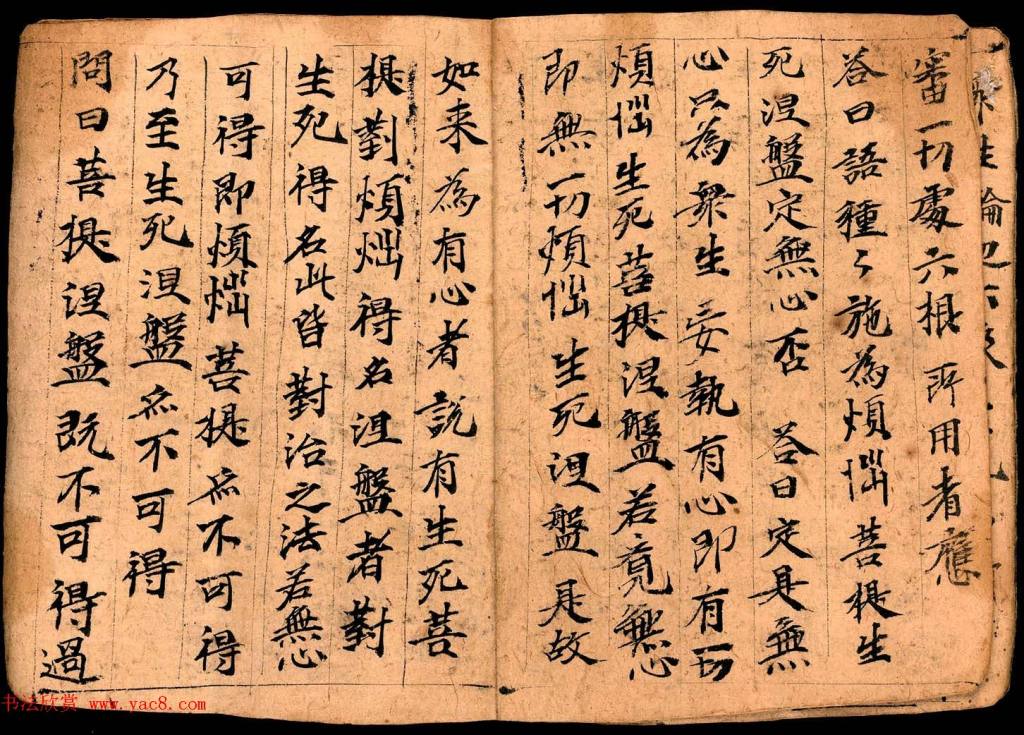 生輪迴六趣
審一切處六根所用者應
答曰語種々施為煩惱菩提生
死涅盤定無心否 答曰定是無
心只為衆生妄執有心即有一切
煩惱生死菩提涅盤若覓無心
即無一切煩惱生死涅盤是故
如来為有心者說有生死菩
提對煩惱得名涅盤者對
生死得名此皆對治之法若無心
可得即煩惱菩提亦不可得
乃至生死涅盤亦不可得
問曰菩提涅盤既不可得過
书法欣赏 www.yac8.com